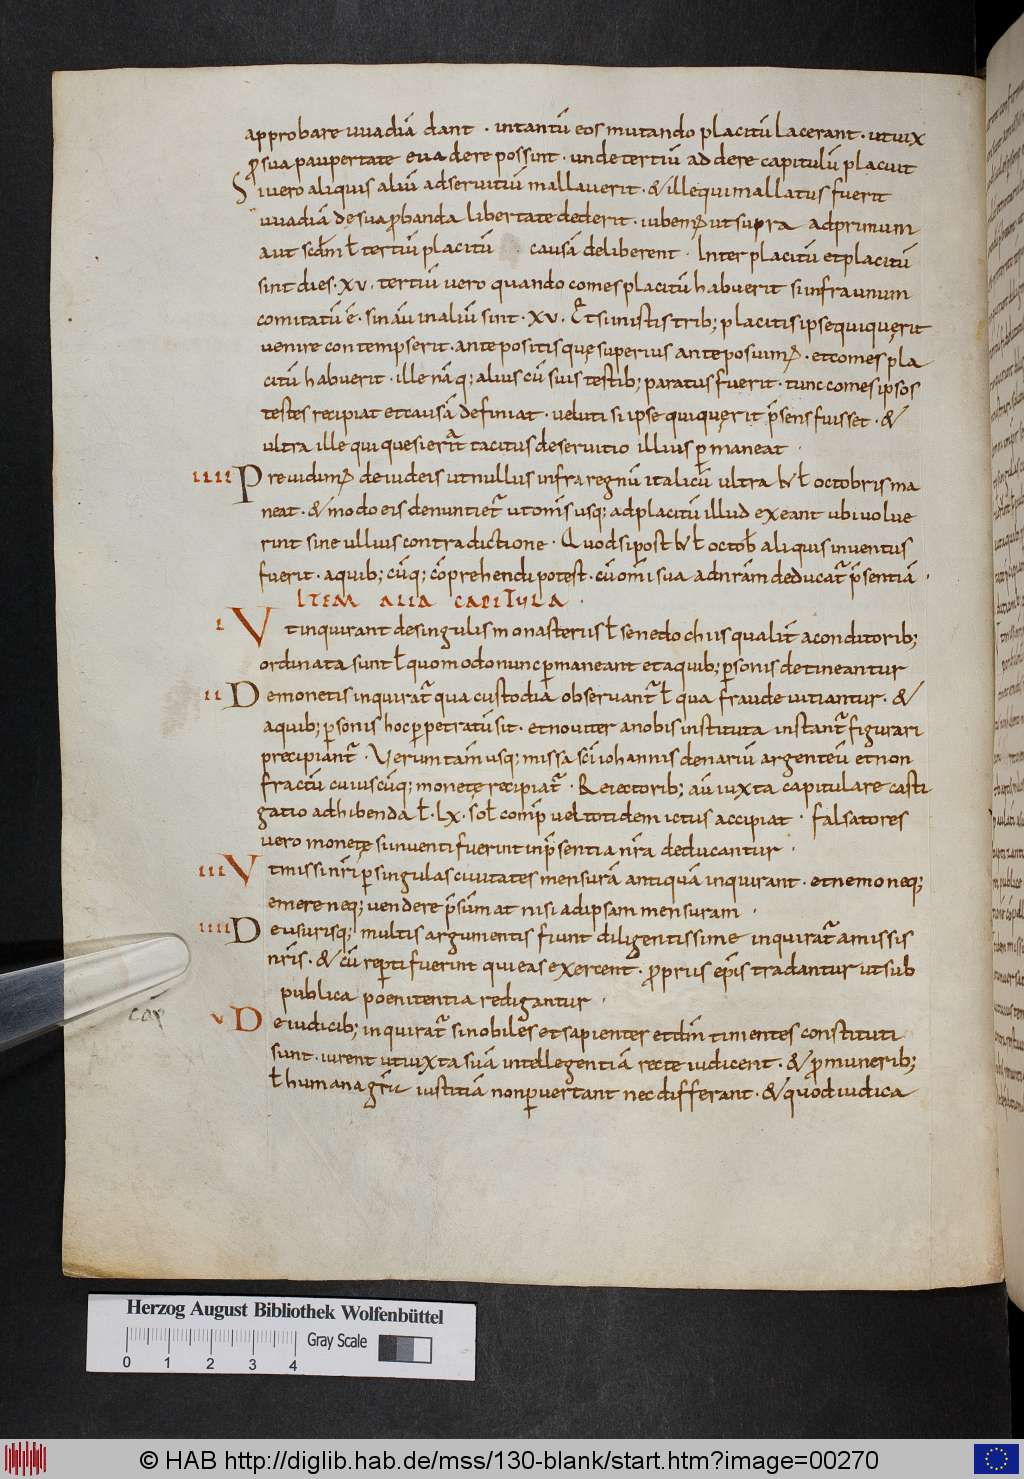 approbare uuadiā dant · intantū eos mutando placitū lacerant · utuix
ꝓ sua paupertate euadere possint · unde tertiū addere capitulū placuit
Siuero aliquis aliū adseruitiū mallauerit · & ille qui mallatus fuerit
uuadiā desua ꝓbanda libertate dederit · iubem utsupra adprimum
aut scdm ƚ tertiū placitū causā deliberent · Inter placitū et placitū
sint dies · xv · tertiū uero quando comes placitū habuerit si infra unum
comitatū ē · sin aū in aliū sint · xv · Et si inistis trib; placitis ipse qui quęrit
uenire contempserit · ante positis que superius anteposuim · et comes pla
citū habuerit · ille nāq; alius cū suis testib; paratus fuerit · tunc comes ipsos
testes recipiat et causā definiat · ueluti si ipse qui quęrit p̄sens fuisset · &
ultra ille qui quesierat tacitus deseruitio illius ꝑmaneat ·
IIII Preuidim de iudeis ut nullus infra regnū italicū ultra kƚ octobris ma
neat · & modo eis denuntiet ut om̄s usq; ad placitū illud exeant ubi uolue
rint sine ullius contradictione · Quod si post kƚ octoƀ aliquis inuentus
fuerit · aquib; cūq; cōprehendi potest · cū om̄i sua ad nr̄am deducat p̄sentiā ·
ITEM ALIA CAPITULA ·
I Vt inquirant de singulis monasteriis ƚ senedochiis qualit̄ aconditorib;
ordinata sunt ƚ quomodo nunc ꝑmaneant et aquib; ꝑsonis detineantur
II De monetis inquirat qua custodia obseruant ƚ qua fraude uitiantur · &
aquib; ꝑsonis hoc ꝑpetratū sit · et nouiter anobis instituta instant figurari
precipiant · Verumtam̄ usq; missa sc̄i iohannis denariū argenteū et non
fractū cuiuscūq; monetę recipiat · Reiectorib; aū iuxta capitulare casti
gatio adhibenda ƚ · lx · soƚ comp̄ uel totidem ictus accipiat · falsatores
uero monetę si inuenti fuerint inp̄sentia nr̄a deducantur ·
III Vt missi nr̄i ꝑ singulas ciuitates mensurā antiquā inquirant · et nemo neq;
emere neq; uendere p̄sūmat nisi ad ipsam mensuram ·
IIII De usuris q; multis argumentis fiunt diligentissime inquirat amissis
nr̄is · & cū reꝑti fuerint qui eas exercent · ꝓpriis ep̄is tradantur ut sub
publica poenitentia redigantur ·
cap
V De iudicib; inquirat si nobiles et sapientes et dm̄ timentes constituti
sunt · iurent ut iuxta suā intellegentiā recte iudicent · & ꝓ munerib;
ƚ humana gr̄a iustitiā non ꝑuertant nec differant · & quod iudica
Herzog August Bibliothek Wolfenbüttel
Gray Scale
0 1 2 3 4
© HAB http://diglib.hab.de/mss/130-blank/start.htm?image=00270